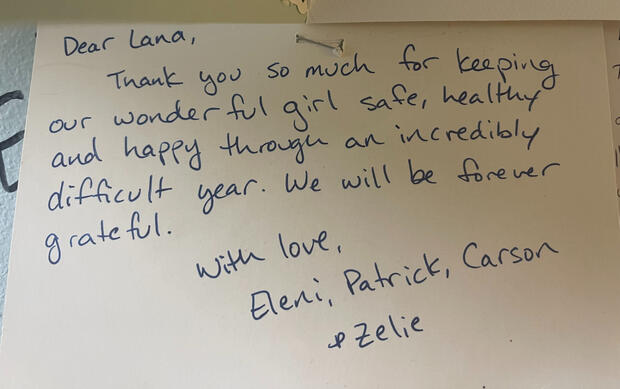 Dear Lana,
Thank you so much for keeping
our wonderful girl safe, healthy
and happy through an incredibly
difficult year. We will be forever
grateful.
With love,
Eleni, Patrick, Carson
& Zelie